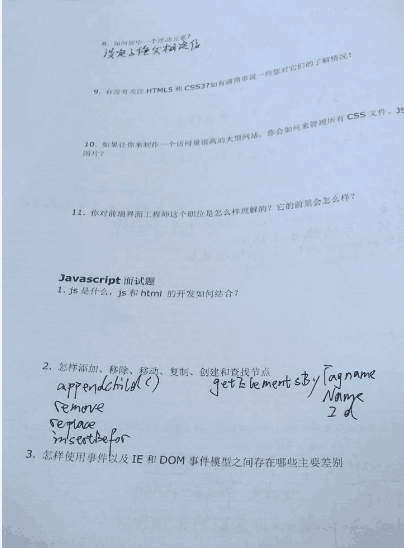 8. 如何居中一个浮动元素?
设定子绝父相定位
9. 有没有关注 HTML5 和 CSS3?如有请简单说一些您对它们的了解情况!
10. 如果让你来制作一个访问量很高的大型网站，你会如何来管理所有 CSS 文件、JS
图片?
11. 你对前端界面工程师这个职位是怎么样理解的? 它的前景会怎么样?
Javascript 面试题
1. js 是什么，js 和 html 的开发如何结合?
2. 怎样添加、移除、移动、复制、创建和查找节点
appendChild() getElementsByTagname
remove Name
replace Id
insertBefor
3. 怎样使用事件以及 IE 和 DOM 事件模型之间存在哪些主要差别